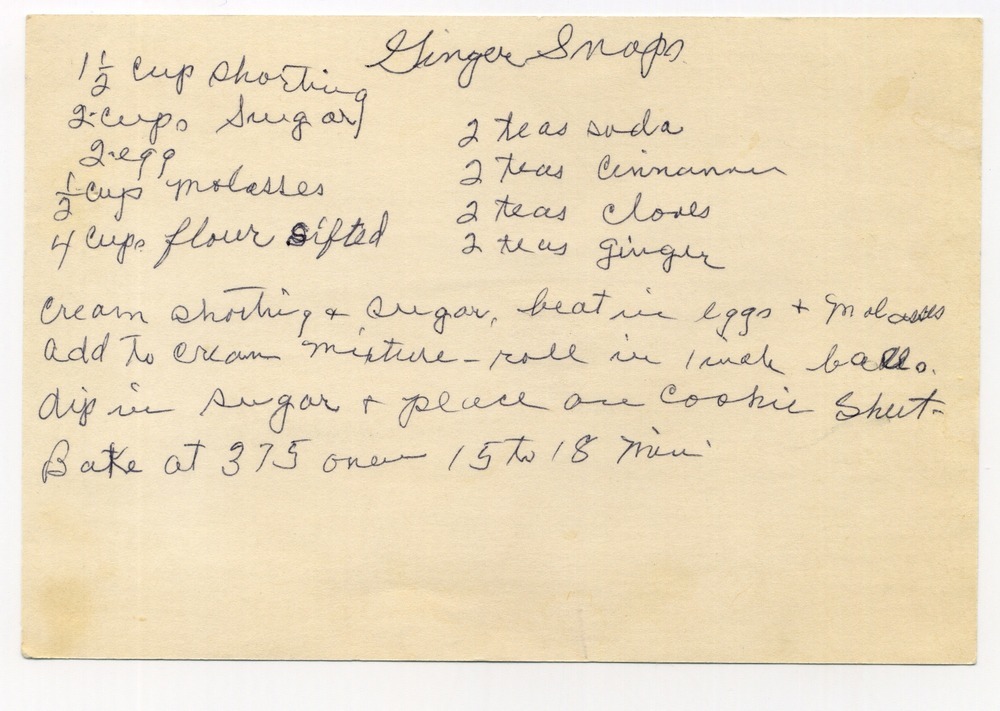 Ginger Snaps
1 1/2 cup shorting
2 cups Sugar
2 egg
1/2 cup molasses
4 cups flour sifted
2 teas soda
2 teas Cinnamon
2 teas cloves
2 teas ginger
Cream shorting + sugar, beat in eggs + molasses
add to cream mixture - roll in 1 inch balls.
dip in sugar + place on cookie sheet-
Bake at 375 oven 15 to 18 min